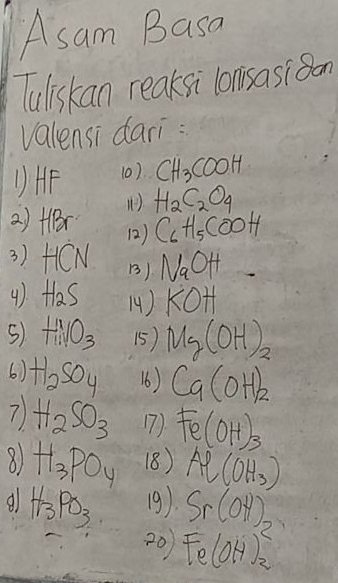 Asam Basa
Tuliskan reaksi Ionisasi dan
Valensi dari :
1) HF
2) HBr
3) HCN
4) H2S
5) HNO3
6) H2SO4
7) H2SO3
8) H3PO4
9) H3PO3
10) CH3COOH
11) H2C2O4
12) C6H5COOH
13) NaOH
14) KOH
15) Mg(OH)2
16) Ca(OH)2
17) Fe(OH)3
18) Al(OH3)
19) Sr(OH)2
20) Fe(OH)2